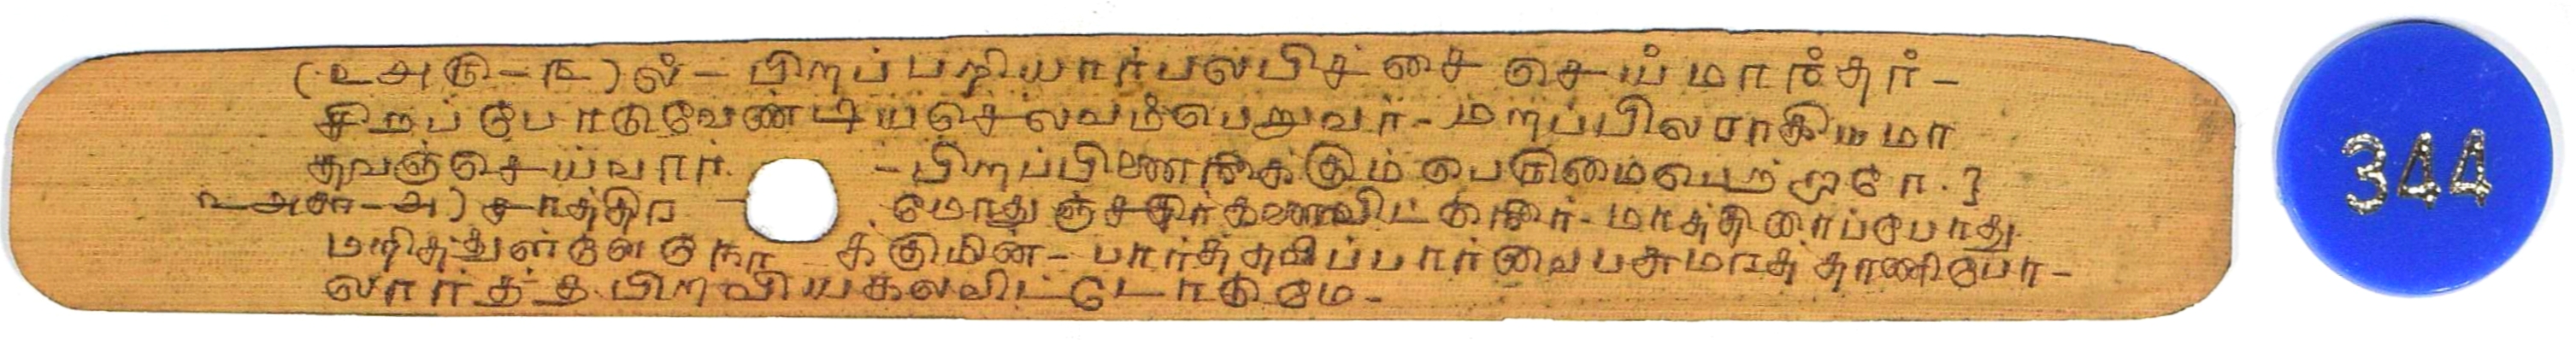 (உஅரு-ரு)ல் - பிறப்பறியார்பலபிச்சை செய்மாந்தர் -
சிறப்போடுவேண்டியசெல்வம்பெறுவர் - மறப்பிலராகியமா
தவஞ்செய்வார் - பிறப்பிணை நீக்கும் பெருமைபெற்றாரே.}
உஅசு-அ) சாத்திர மோதுஞ்சதுர்களைவிட்டுநீர் - மாத்திரைப்போது
மறித்துள்ளேநோ க்குமின் - பார்த்தவிப்பார்வைபசுமரத்தாணிபோ-
லார்த்த பிறவியகலவிட்டோடுமே -
344